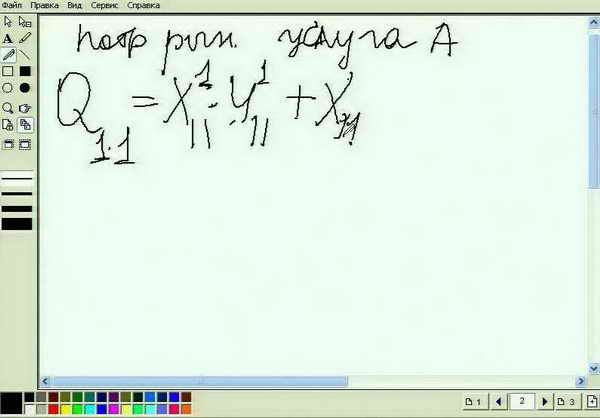 Файл Правка Вид Сервис Справка
потр рын. услуга А
Q₁.₁ = X¹₁₁ · Y¹₁₁ + X
A
1 2 3